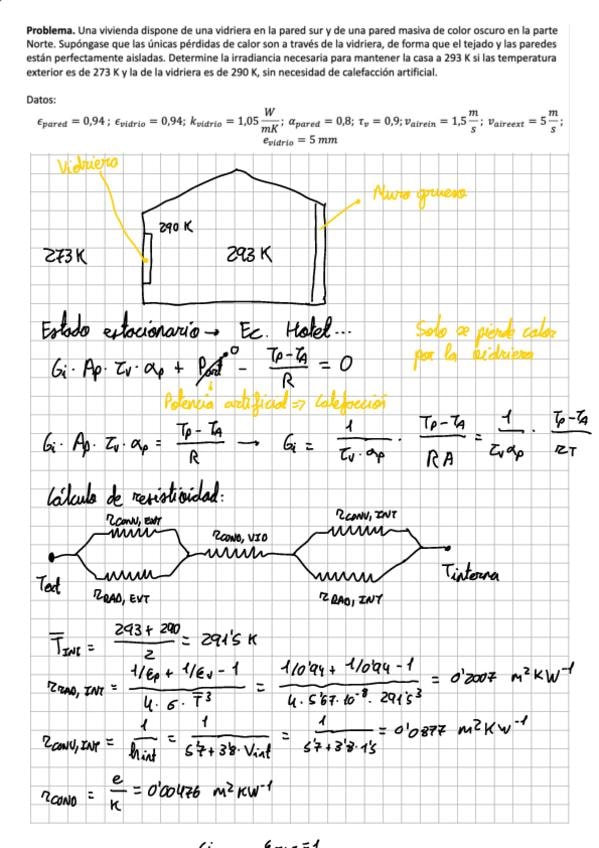 Problema. Una vivienda dispone de una vidriera en la pared sur y de una pared masiva de color oscuro en la parte
Norte. Supóngase que las únicas pérdidas de calor son a través de la vidriera, de forma que el tejado y las paredes
están perfectamente aisladas. Determine la irradiancia necesaria para mantener la casa a 293 K si las temperatura
exterior es de 273 K y la de la vidriera es de 290 K, sin necesidad de calefacción artificial.
Datos:
ϵpared = 0,94 ; ϵvidrio = 0,94; kvidrio = 1,05 W/mK ; αpared = 0,8; τv = 0,9; vairein = 1,5 m/s ; vaireext = 5 m/s ;
evidrio = 5 mm
Vidriera
Muro grueso
290 K
273 K
293 K
Estado estacionario → Ec. Hotel...
Solo se pierde calor
por la vidriera
Gi · Ap · τv · αp + Part⁰ − (Tp − TA)/R = 0
Potencia artificial => Calefacción
Gi · Ap · τv · αp = (Tp − TA)/R → Gi = 1/(τv · αp) · (Tp − TA)/(RA) = 1/(τv αp) · (Tp − TA)/rT
Cálculo de resistividad:
rCONV, EXT
rCOND, VID
rCONV, INT
Text
Tinterna
rRAD, EXT
rRAD, INT
T̄INT = (293 + 290)/2 = 291'5 K
rRAD, INT = (1/εp + 1/εv − 1)/(4 · σ · T̄³) = (1/0'94 + 1/0'94 − 1)/(4 · 5'67 · 10⁻⁸ · 291'5³) = 0'2007 m² K W⁻¹
rCONV, INT = 1/hint = 1/(5'7 + 3'8 · Vint) = 1/(5'7 + 3'8 · 1'5) = 0'0877 m² K W⁻¹
rCOND = e/K = 0'00476 m² K W⁻¹